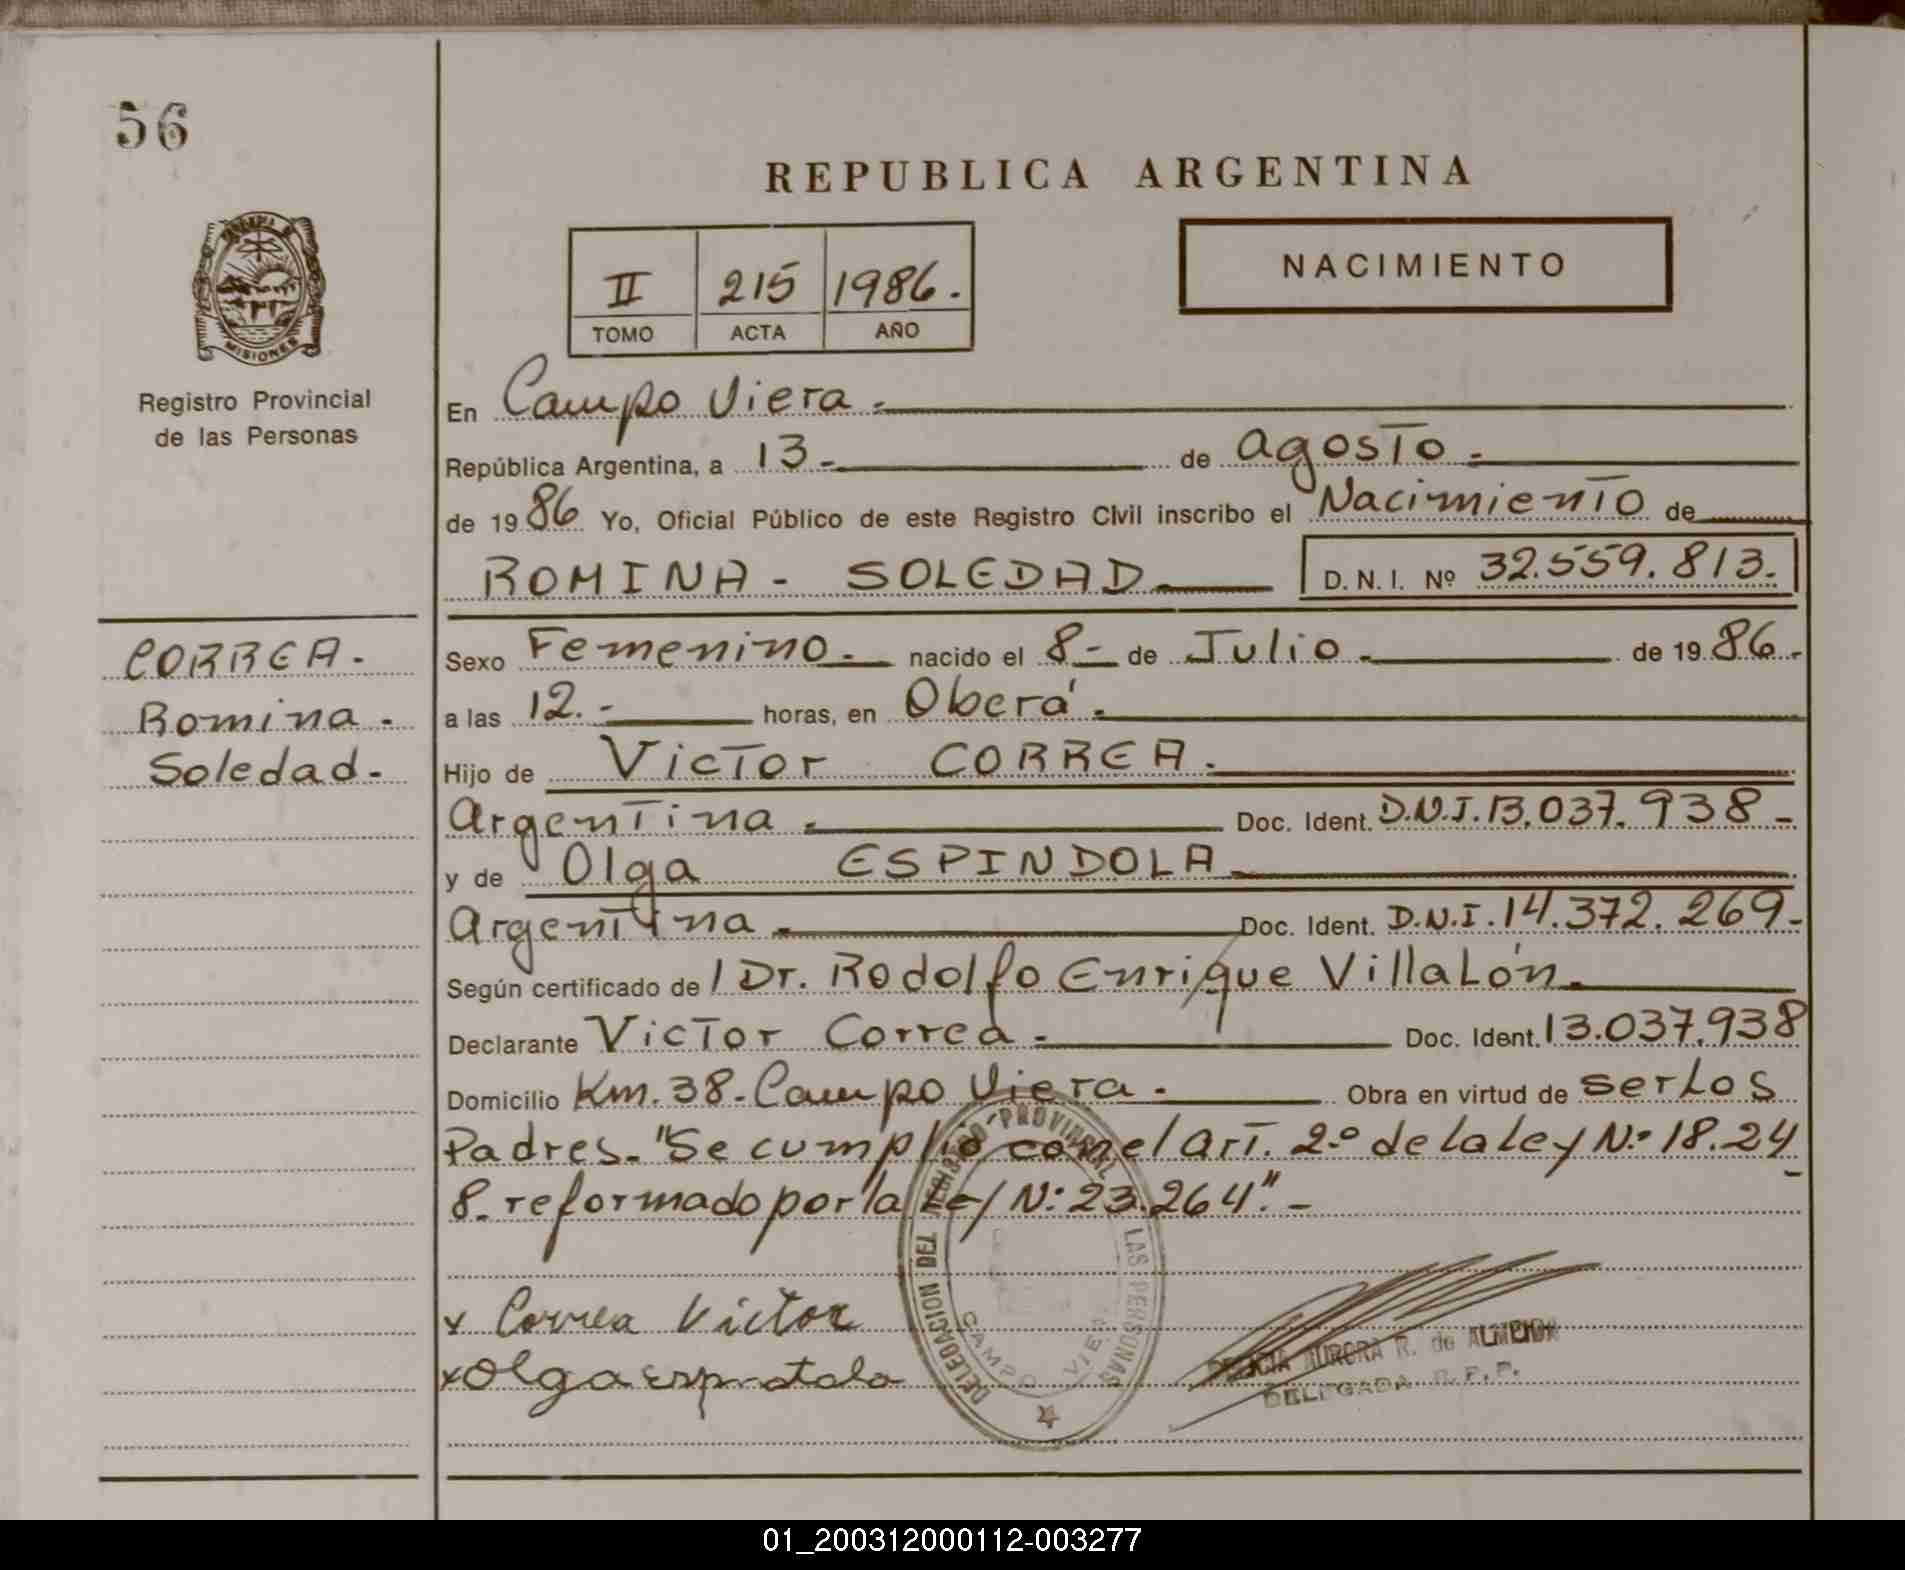 56
REPUBLICA ARGENTINA
MISIONES
Registro Provincial
de las Personas
II 215 1986.
TOMO ACTA AÑO
NACIMIENTO
En Campo Viera.
República Argentina, a 13- de agosto.
de 1986 Yo, Oficial Público de este Registro Civil inscribo el Nacimiento de
ROMINA - SOLEDAD D. N. I. Nº 32.559.813.
CORREA.
Romina.
Soledad-
Sexo Femenino. nacido el 8- de Julio. de 1986-
a las 12.- horas, en Oberá.
Hijo de Victor CORREA.
Argentina. Doc. Ident. D.N.I. 13.037.938-
y de Olga ESPINDOLA
Argentina. Doc. Ident. D.N.I. 14.372.269-
Según certificado de l Dr. Rodolfo Enrique Villalón.
Declarante Victor Correa. Doc. Ident. 13.037.938
Domicilio Km. 38- Campo Viera. Obra en virtud de ser Los
Padres. "Se cumplió con el Art. 2º de la Ley Nº 18.24
8- reformado por la Ley Nº 23.264".-
x Correa Victor
x Olga
DELEGACION DEL REGISTRO PROVINCIAL DE LAS PERSONAS
CAMPO VIERA
AURORA R. de ALMEIDA
DELEGADA R.P.P.
01_200312000112-003277